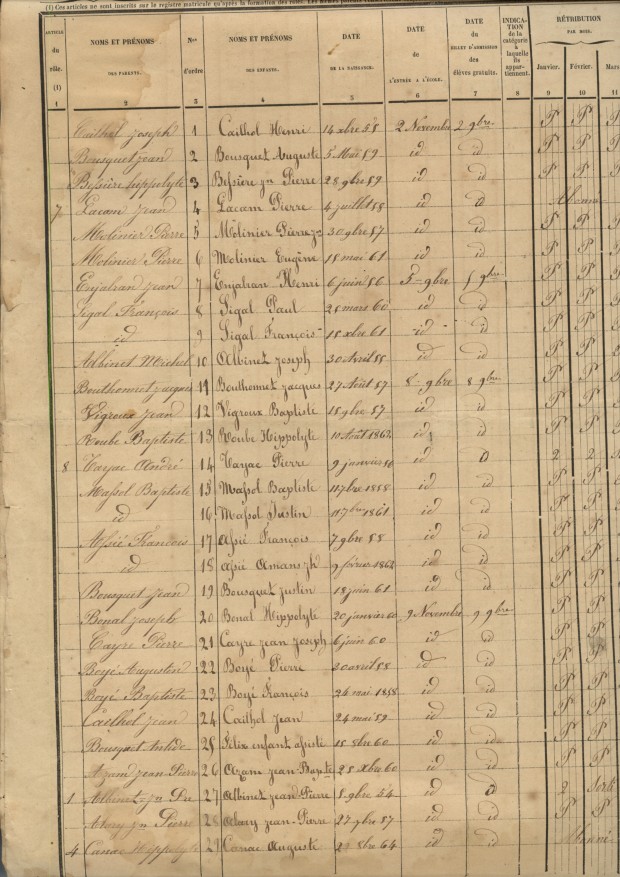 (1) Ces articles ne sont inscrits sur le registre matricule qu'après la formation des rôles.
ARTICLE du rôle. (1) NOMS ET PRÉNOMS DES PARENTS. Nos d'ordre NOMS ET PRÉNOMS DES ENFANTS. DATE DE LA NAISSANCE. DATE de L'ENTRÉE A L'ÉCOLE. DATE du BILLET D'ADMISSION des élèves gratuits. INDICATION de la catégorie à laquelle ils appartiennent. RÉTRIBUTION PAR MOIS. Janvier. Février. Mars
1 2 3 4 5 6 7 8 9 10 11
Cailhol Joseph 1 Cailhol Henri 14 xbre 58 2 Novembre 2 9bre P P P
Bousquet Jean 2 Bousquet Auguste 5 Mai 59 id id P P P
Bessière hippolyte 3 Bessière jn Pierre 28 9bre 59 id id P P P
7 Lacam Jean 4 Lacam Pierre 4 juillet 58 id id
Molinier Pierre 5 Molinier Pierre jn 30 9bre 57 id id P P P
Molinier Pierre 6 Molinier Eugène 18 mai 61 id id P P P
Enjalran Jean 7 Enjalran Henri 6 juin 56 5 - 9bre 5 9bre P P P
Sigal François 8 Sigal Paul 25 mars 60 id id P P P
id 9 Sigal François 18 xbre 61 id id P P
Albinet Michel 10 Albinet Joseph 30 Avril 58 id id P P
Bouthonnet Jacques 11 Bouthonnet Jacques 27 Août 57 8 - 9bre 8 9bre P P
Vigroux Jean 12 Vigroux Baptiste 18 9bre 57 id id P P
Roube Baptiste 13 Roube Hippolyte 10 Août 1862 id id P P
8 Tayac André 14 Tayac Pierre 9 janvier 56 id D 2 2
Massol Baptiste 15 Massol Baptiste 11 7bre 1858 id id P P
id 16 Massol Justin 11 7bre 1861 id id P P
Assié François 17 Assié François 7 9bre 58 id id P P
id 18 Assié Amans jh 9 février 1862 id id P P
Bousquet Jean 19 Bousquet Justin 18 juin 61 id id P P
Bonal Joseph 20 Bonal Hippolyte 20 janvier 60 9 Novembre 9 9bre P P
Cayre Pierre 21 Cayre Jean Joseph 6 juin 60 id id P P
Boyé Augustin 22 Boyé Pierre 20 avril 58 id id P P
Boyé Baptiste 23 Boyé François 24 mai 1858 id id P P
Cailhol Jean 24 Cailhol Jean 24 mai 59 id id P P
Bousquet 25 Félix enfant assisté 15 8bre 60 id id P P
Azam Jean-Pierre 26 Azam Jean-Bapte 25 xbre 60 id id P P
1 Albinet jn Pre 27 Albinet Jean-Pierre 8 9bre 54 id D 2 Sorti
Alary jn Pierre 28 Alary Jean-Pierre 27 9bre 57 id id P P
4 Canac Hippolyte 29 Canac Auguste 29 8bre 64 id id